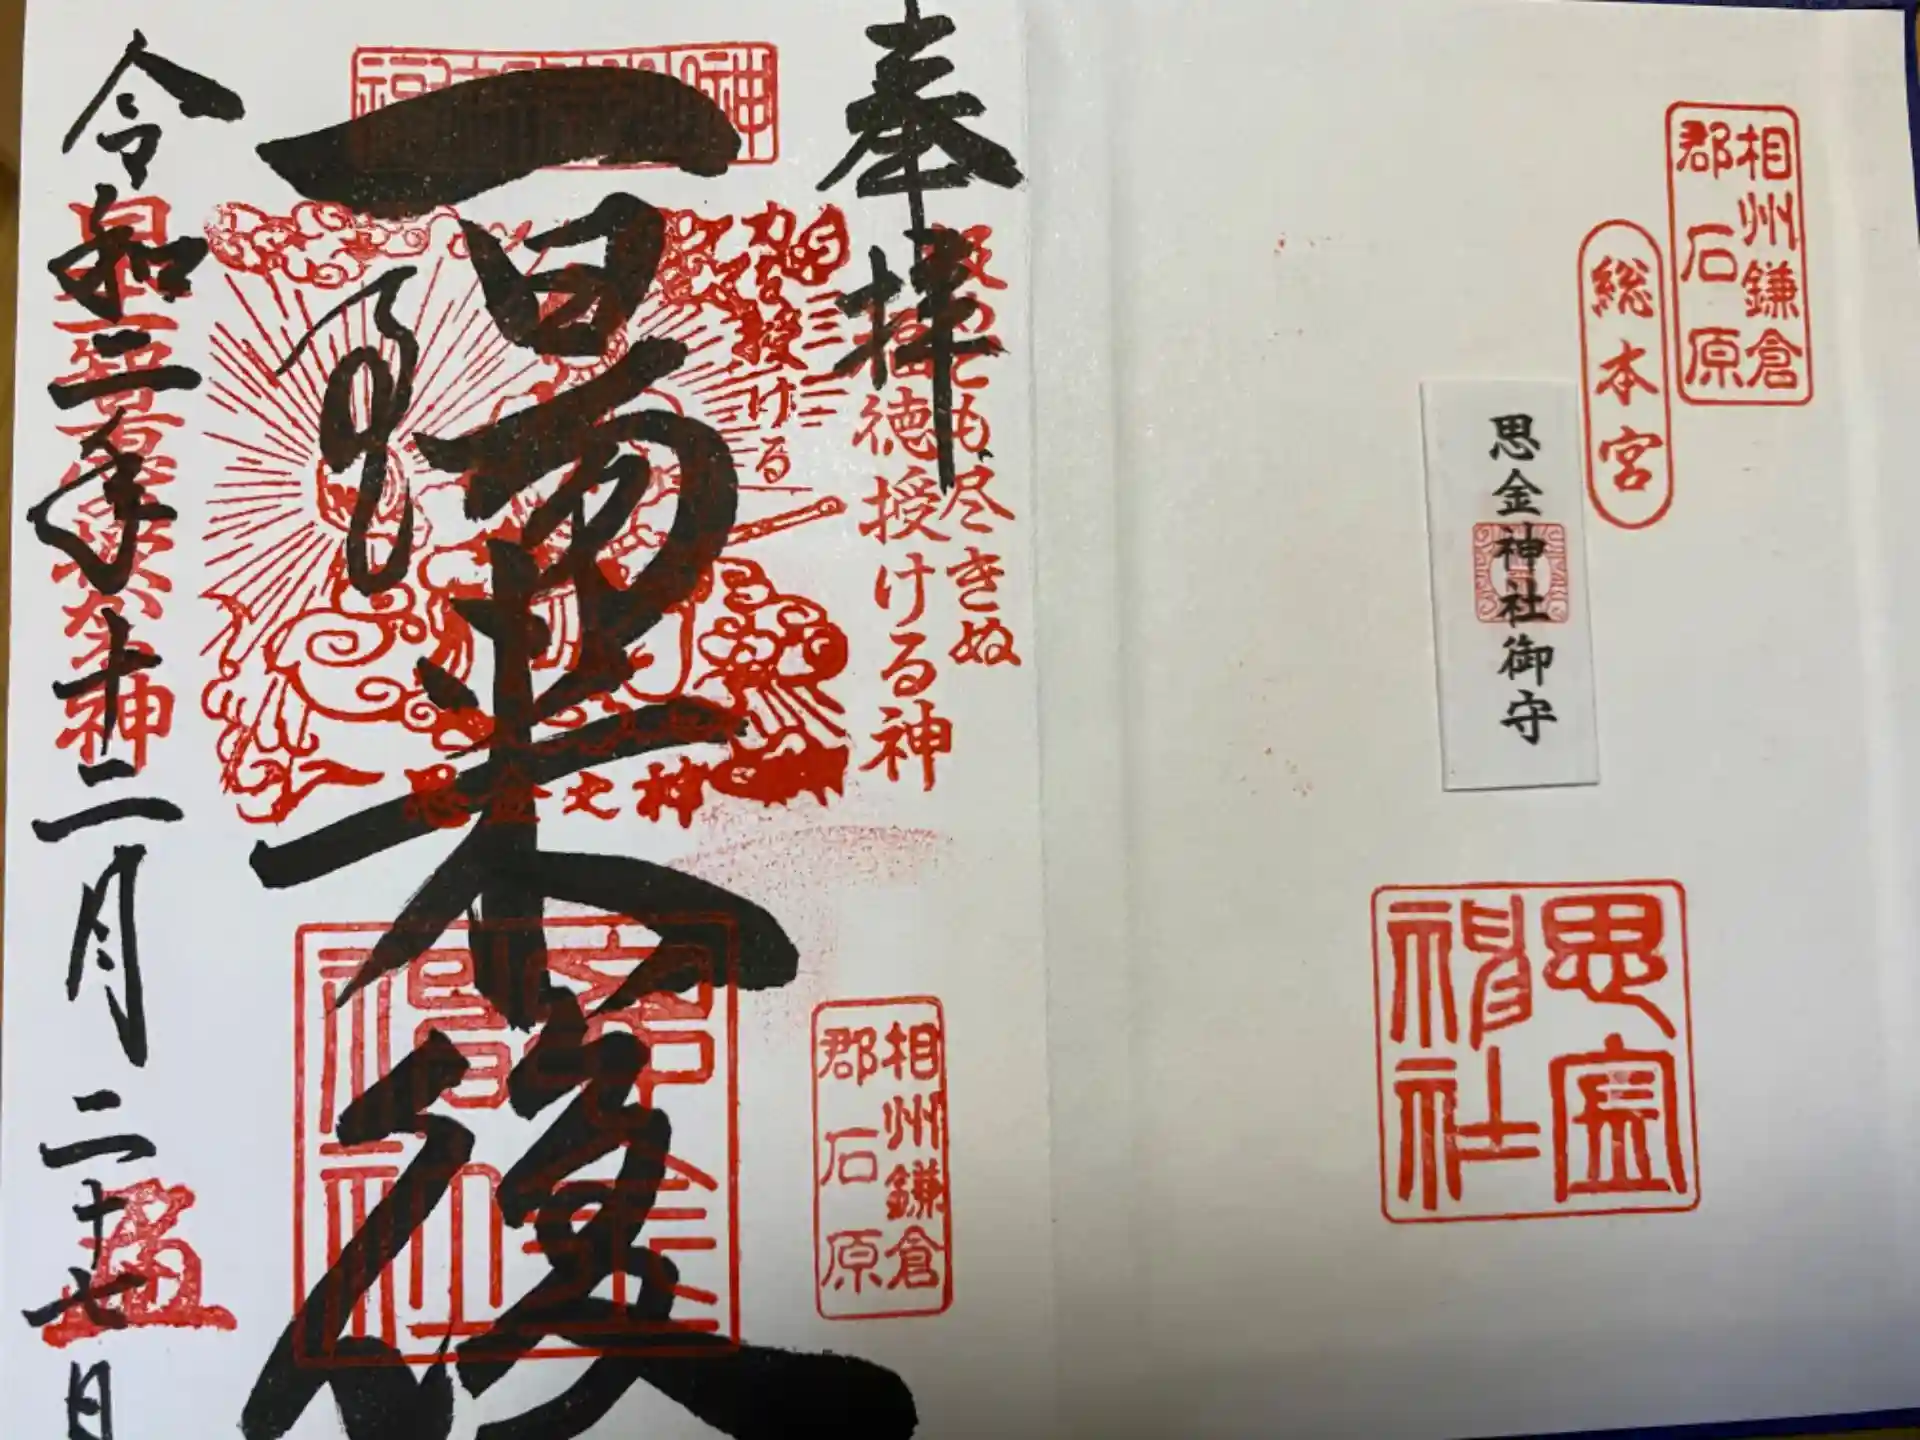 相州鎌倉
郡石原
総本宮
思金神社御守
思金
神社
奉拝
汲めども尽きぬ
福徳授ける神
授ける
一陽来復
思金之神
相州鎌倉
郡石原
令和二年十二月二十七日